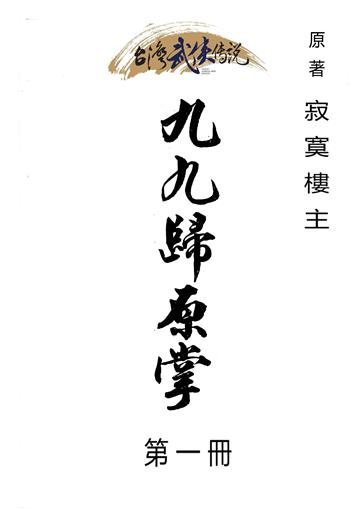 台灣武俠傳説
原著 寂寞樓主
九九歸原掌
第一冊